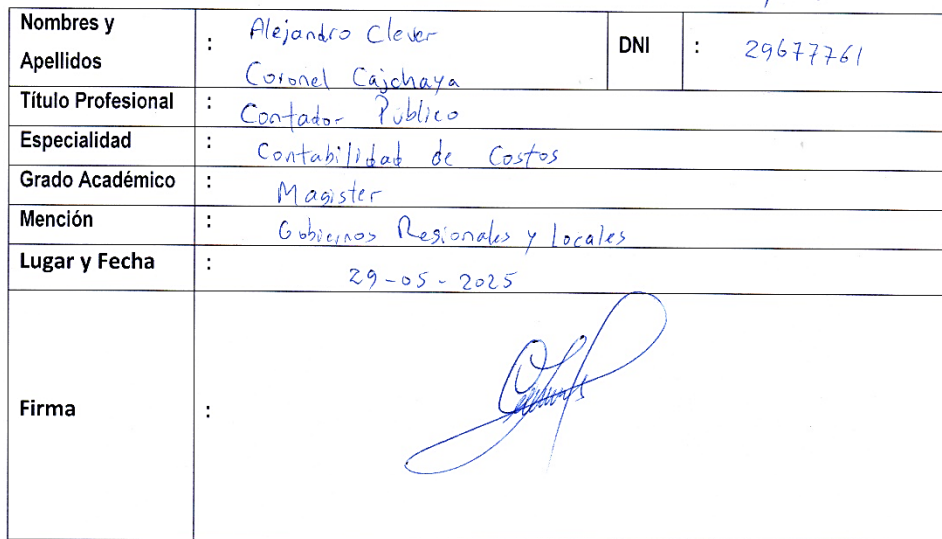 Nombres y Apellidos : Alejandro Clever Coronel Cajchaya DNI : 29677761
Título Profesional : Contador Público
Especialidad : Contabilidad de Costos
Grado Académico : Magister
Mención : Gobiernos Regionales y Locales
Lugar y Fecha : 29-05-2025
Firma :